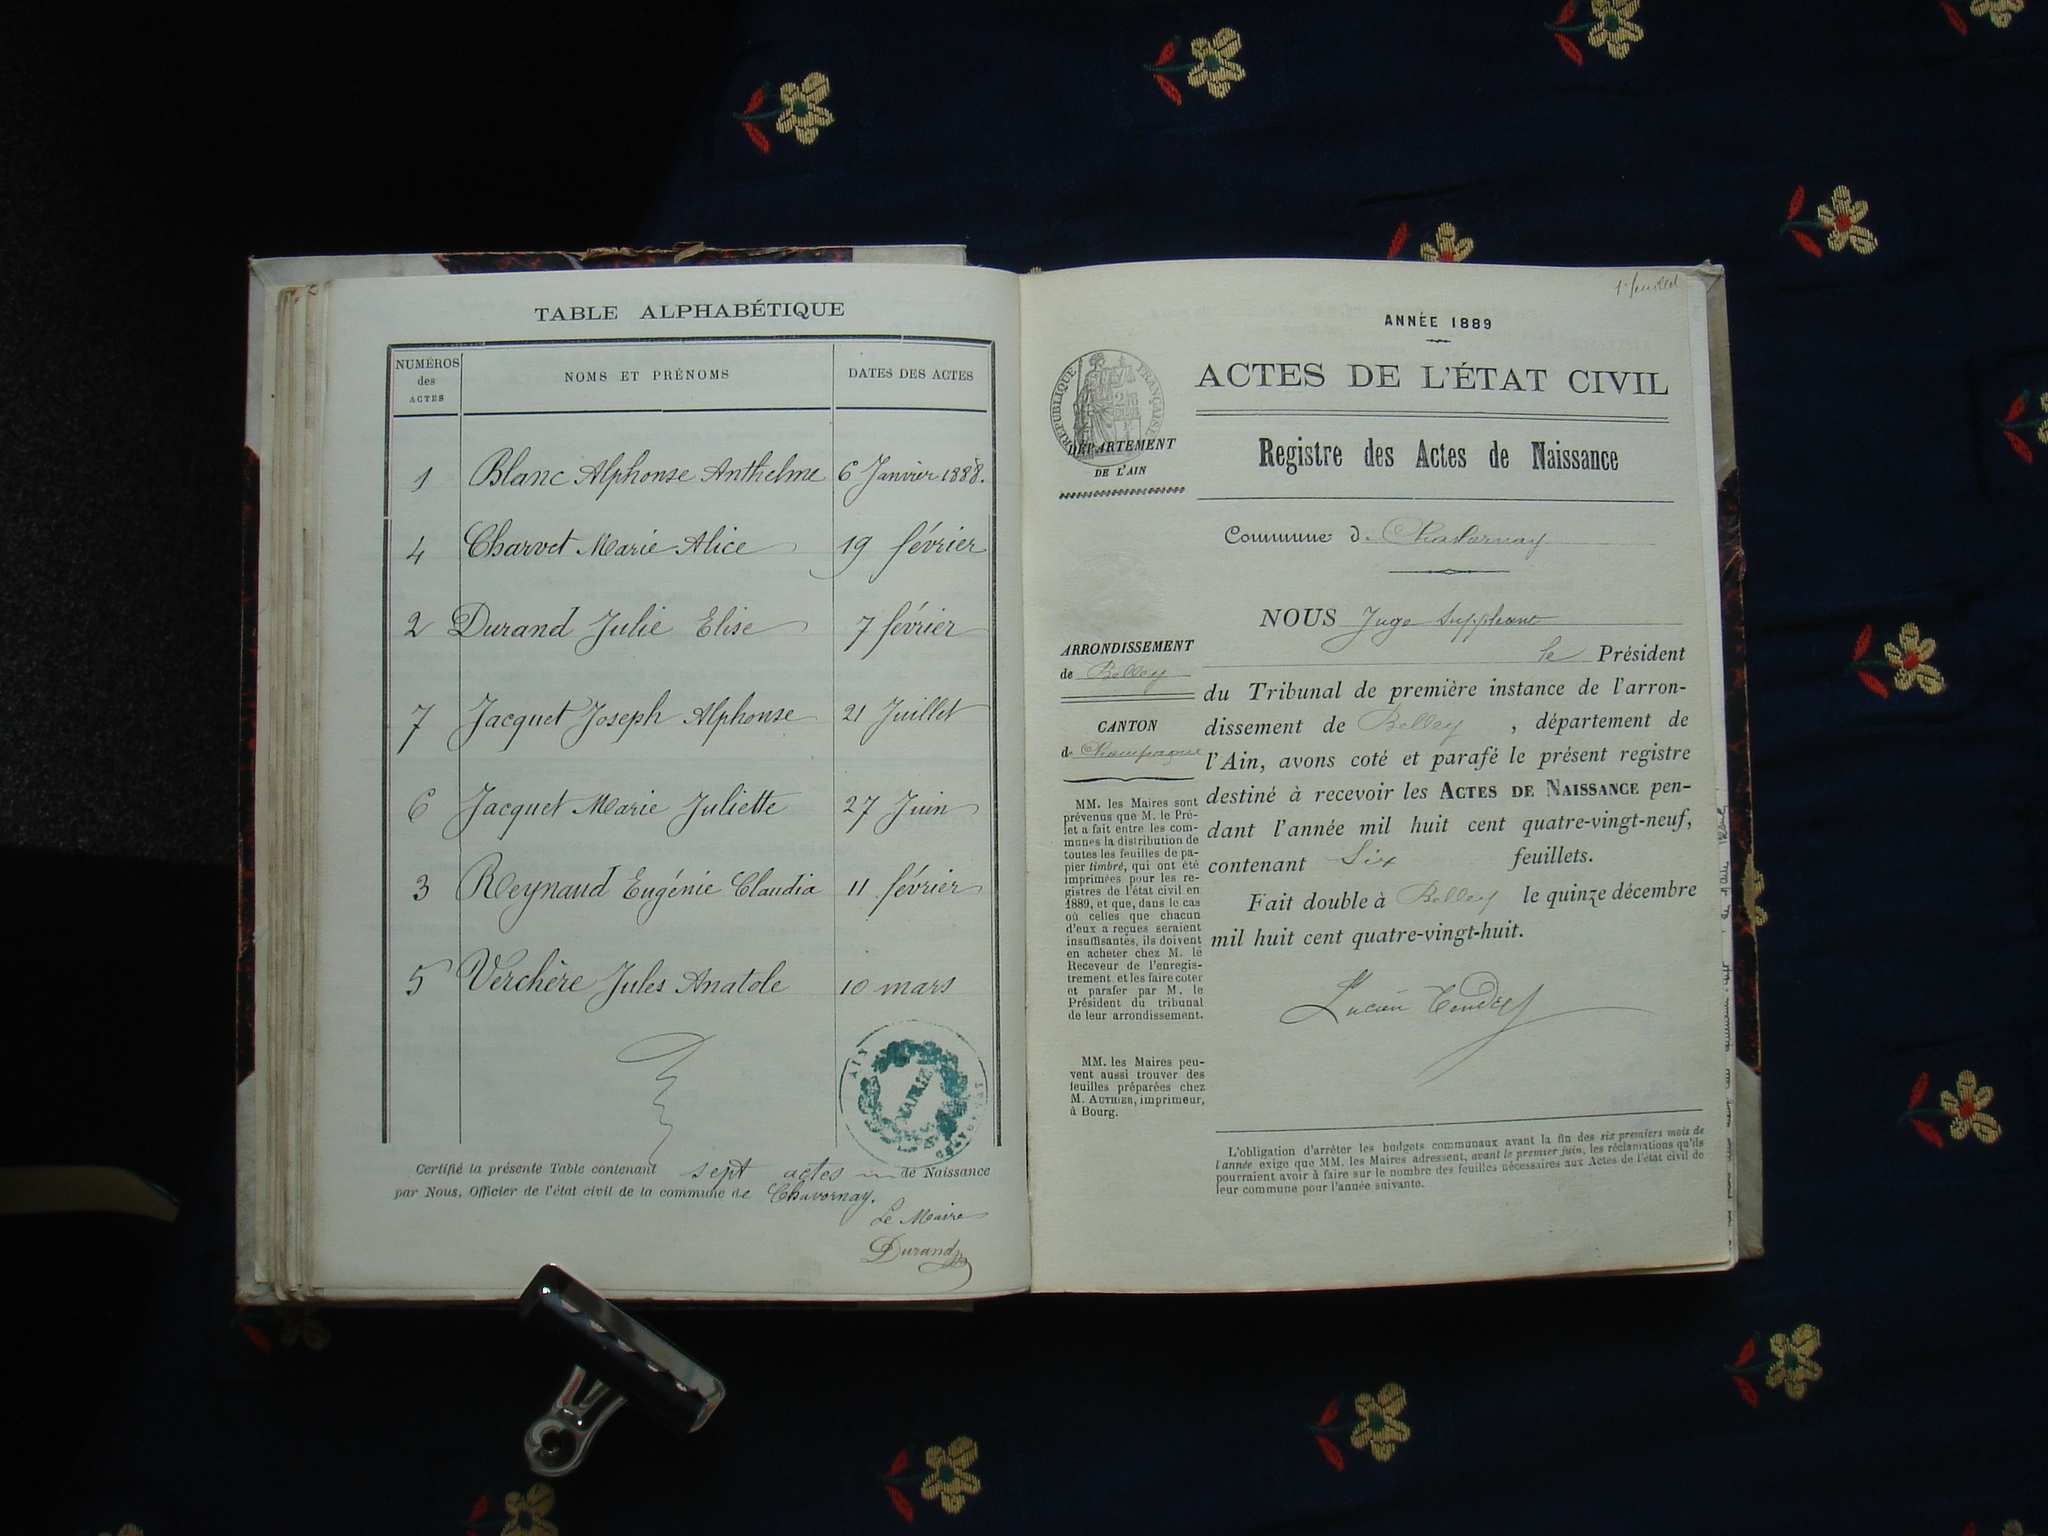 TABLE ALPHABÉTIQUE
NUMÉROS des ACTES
NOMS ET PRÉNOMS
DATES DES ACTES
1 Blanc Alphonse Anthelme 6 Janvier 1888.
4 Charvet Marie Alice 19 février
2 Durand Julie Elise 7 février
7 Jacquet Joseph Alphonse 21 Juillet
6 Jacquet Marie Juliette 27 Juin
3 Reynaud Eugénie Claudia 11 février
5 Verchère Jules Anatole 10 mars
AIN
MAIRIE
Certifié la présente Table contenant sept actes de Naissance
par Nous, Officier de l'état civil de la commune de Chavornay.
Le Maire
Durand
1er feuillet
ANNÉE 1889
RÉPUBLIQUE FRANÇAISE
DÉPARTEMENT
DE L'AIN
ACTES DE L'ÉTAT CIVIL
Registre des Actes de Naissance
Commune d Chavornay
NOUS Juge Suppléant
le Président
du Tribunal de première instance de l'arron-
dissement de Belley, département de
l'Ain, avons coté et parafé le présent registre
destiné à recevoir les ACTES DE NAISSANCE pen-
dant l'année mil huit cent quatre-vingt-neuf,
contenant Six feuillets.
Fait double à Belley le quinze décembre
mil huit cent quatre-vingt-huit.
Lucien Tendret
ARRONDISSEMENT
de Belley
CANTON
de Champagne
MM. les Maires sont
prévenus que M. le Pré-
fet a fait entre les com-
munes la distribution de
toutes les feuilles de pa-
pier timbré, qui ont été
imprimées pour les re-
gistres de l'état civil en
1889, et que, dans le cas
où celles que chacun
d'eux a reçues seraient
insuffisantes, ils doivent
en acheter chez M. le
Receveur de l'enregis-
trement et les faire coter
et parafer par M. le
Président du tribunal
de leur arrondissement.
MM. les Maires peu-
vent aussi trouver des
feuilles préparées chez
M. AUTHIER, imprimeur,
à Bourg.
L'obligation d'arrêter les budgets communaux avant la fin des six premiers mois de
l'année exige que MM. les Maires adressent, avant le premier juin, les réclamations qu'ils
pourraient avoir à faire sur le nombre des feuilles nécessaires aux Actes de l'état civil de
leur commune pour l'année suivante.